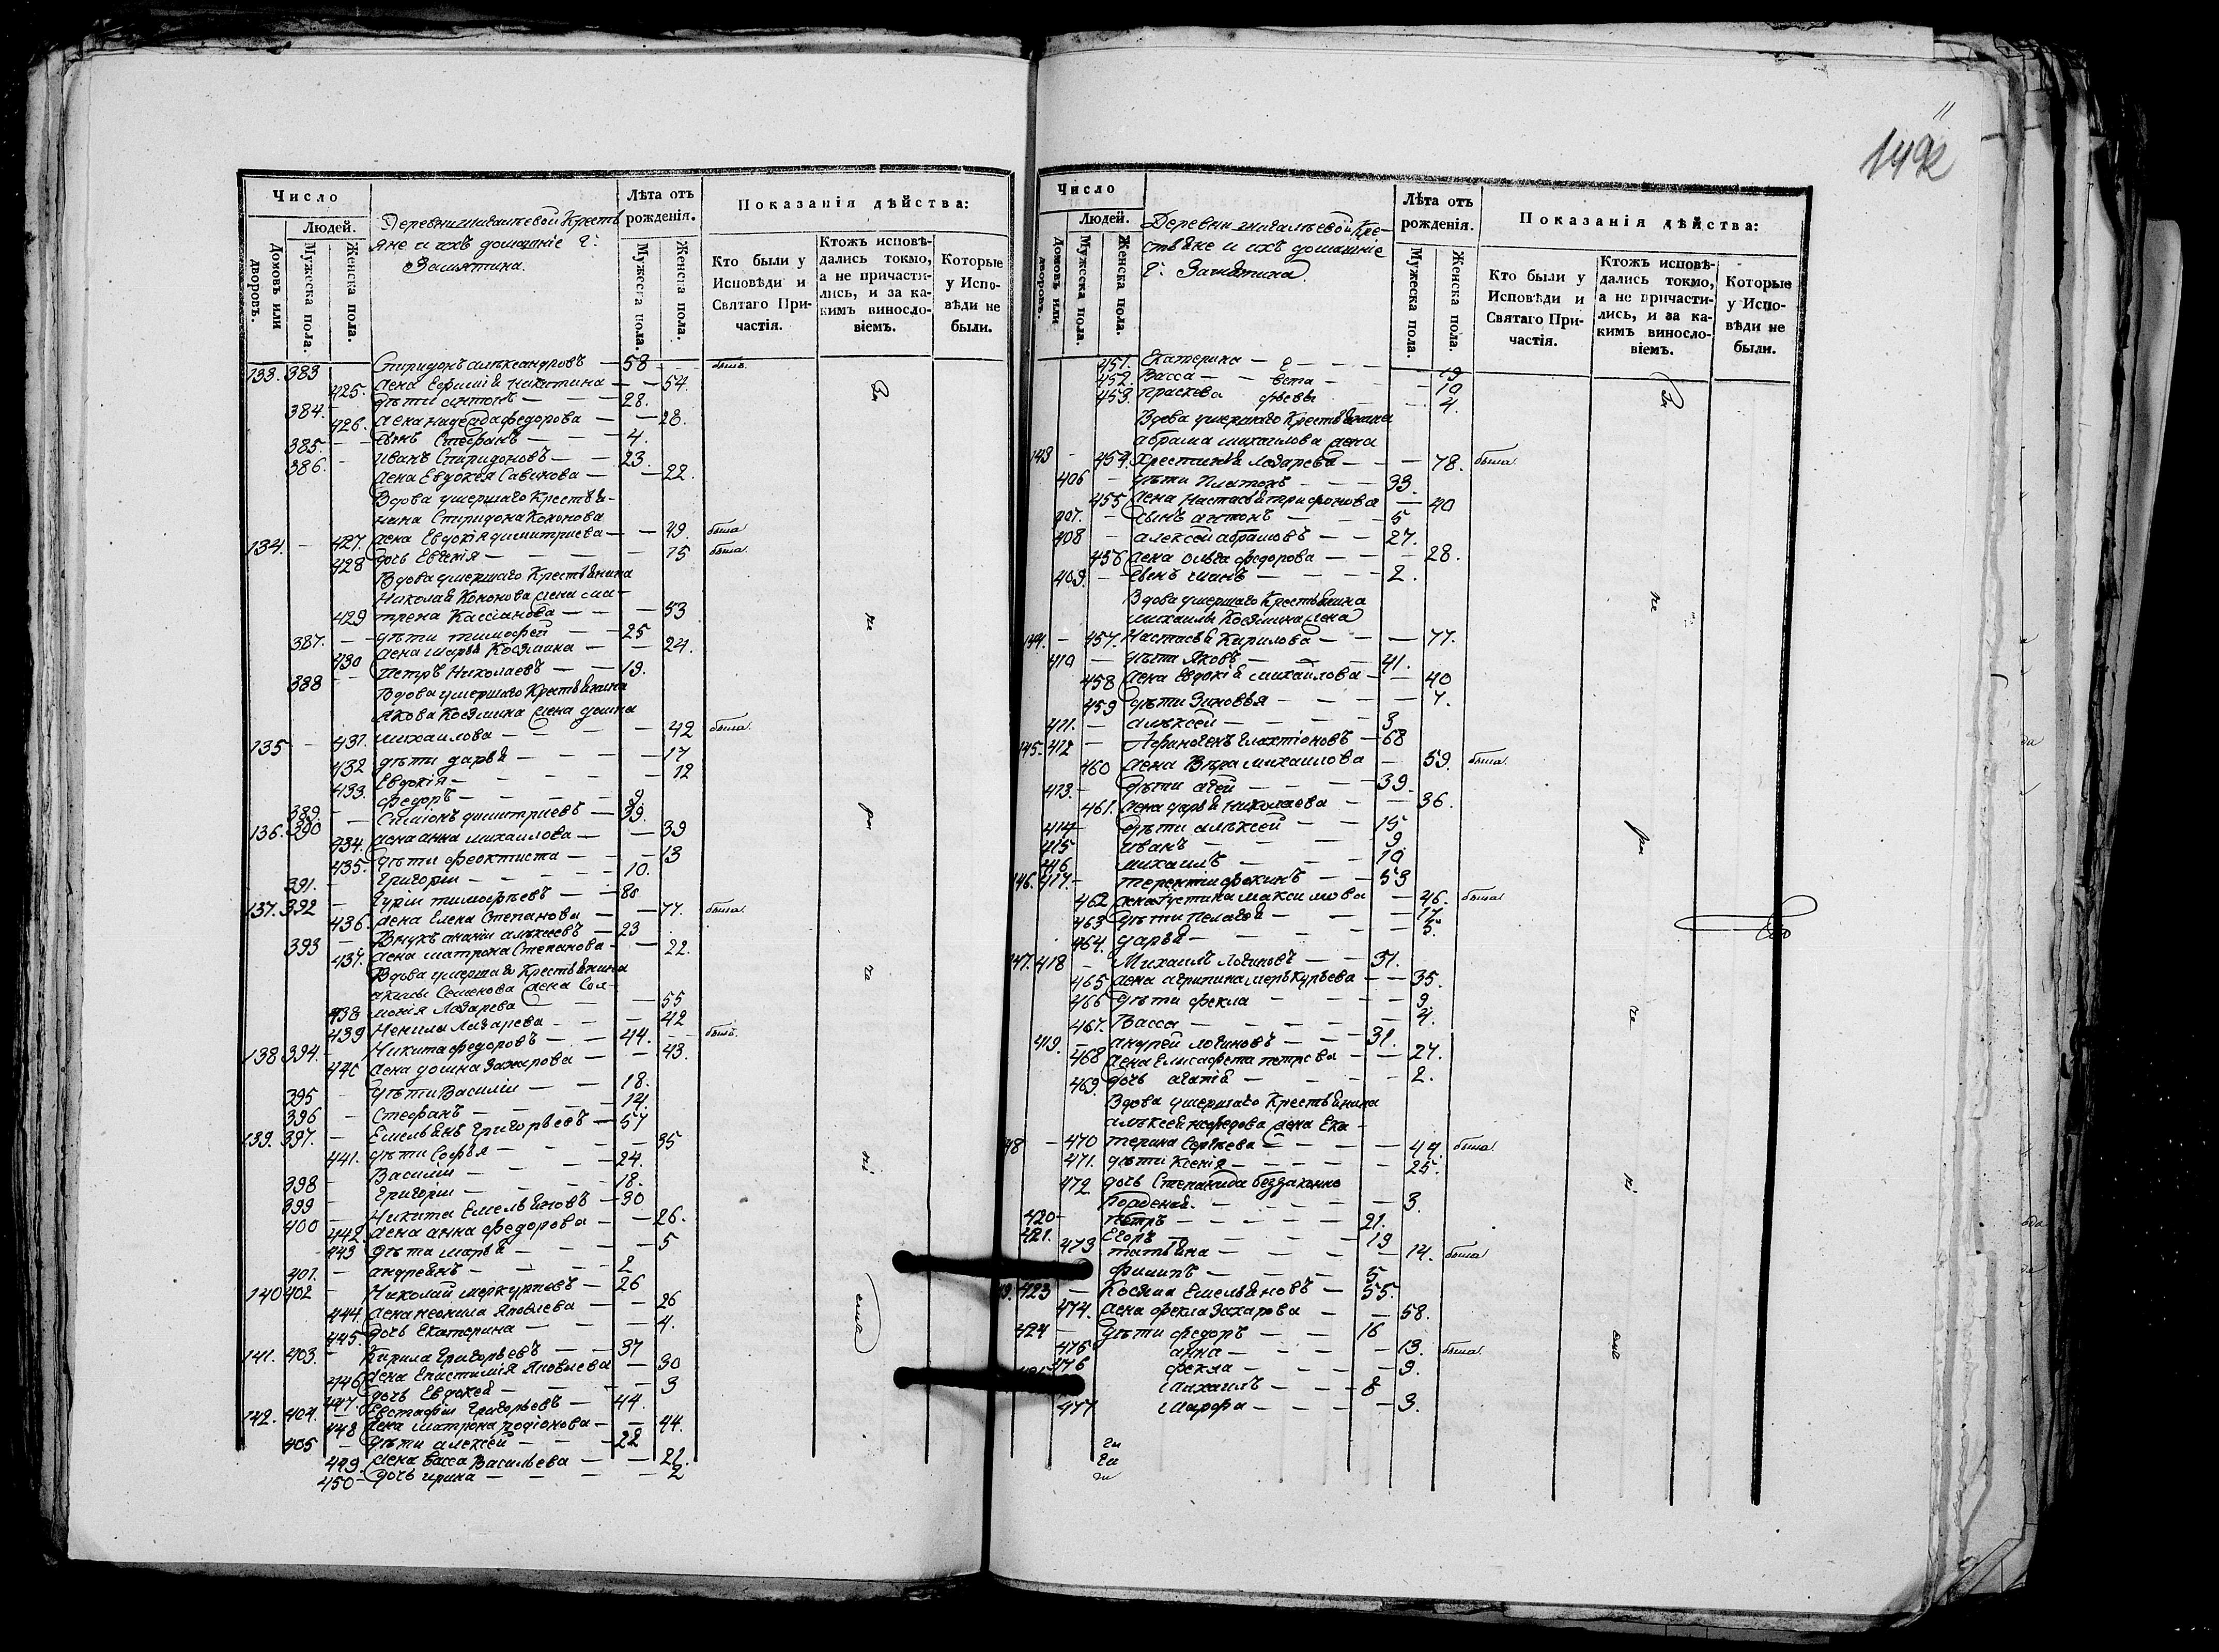 Число
Людей.
Домовъ или дворовъ.
Мужеска пола.
Женска пола.
Деревни Кресть
яне и ихъ домашніе Г:
Замятина.
Лѣта отъ рожденія.
Мужеска пола.
Женска пола.
Показанія дѣйства:
Кто были у Исповѣди и Святаго Причастія.
Ктожъ исповѣдались токмо, а не причастились, и за какимъ винословіемъ.
Которые у Исповѣди не были.
133. 383 Спиридонъ Александровъ — 58 — былъ.
425. жена Евфимія Никитина — — 54.
384. дѣти Антонъ — — 28.
426. жена Надежда Федорова — — 28.
385. — сынъ Стефанъ — — 4.
386. — Иванъ Спиридоновъ — — 23.
жена Евдокея Савинова — — 22.
Вдова умершаго Крестья-
нина Спиридона Кононова
134. — 427. жена Евдокія Димитриева — — 49. была
428 дочь Евгенія — — — 15 была.
Вдова умершаго Крестьянина
Николая Кононова жена Ма-
429 трена Кассіанова — — — 53
387. — — дѣти Тимофей — — 25
430 жена Марья Козмина — — 24.
388 — — Петръ Николаевъ — — 19.
Вдова умершаго Крестьянина
Якова Козмина жена Домна
135 — 431. Михаилова — — — 42 была.
432 дѣти Дарья — — — 17
433. Евдокія — — — — 12
389. — Федоръ — — — — 9
136. 390 — Симіонъ Димитриевъ — 39.
434. жена Анна Михаилова — — 39
435. дѣти Феоктиста — — — 13
391. — Григорій — — — — 10.
137. 392 — Гурій Тимофѣевъ — — 80
436. жена Елена Степанова — — 77. была.
393 — Внукъ Ананій Алѣксеевъ — 23
437. жена Матрона Степанова — — 22.
Вдова умершаго Крестьянина
Семенова жена Сол-
438 монія Лазарева — — — 55
439 Ненила Лазарева — — — 42
138 394. — Никита Федоровъ — — 44. — былъ.
440 жена Домна Захарова — — 43.
395 — дѣти Василій — — 18.
396 — Стефанъ — — — — 14.
139. 397. — Емельянъ Григорьевъ — 57
441. дѣти Софья — — — — 35
398 — Василій — — — 24.
399 — Григорій — — — — 18.
400 — Никита Емельяновъ — 30
442 жена Анна Федорова — — 26.
443 дѣти Марья — — — — 5
401. — Андреянъ — — — — 2
140 402 — Николай Меркурьевъ — 26
444. жена Неонила Яковлева — — 26
445. дочь Екатерина — — — 4.
141. 403. — Кирила Григорьевъ — — 37
446 жена Епистимія Яковлева — 30
447. дочь Евдокея — — — — 3
142. 404. — Евстафій Григорьевъ — 44.
448 жена Матрона Родіонова — — 44.
405 — дѣти Алексей — — — 22
449. жена Васса Васильева — — 21.
450 — дочь Ирина — — — — 2
149
Число
Людей.
Домовъ или дворовъ.
Мужеска пола.
Женска пола.
Деревни Кре-
стьяне и ихъ домашніе
Г: Замятина.
Лѣта отъ рожденія.
Мужеска пола.
Женска пола.
Показанія дѣйства:
Кто были у Исповѣди и Святаго Причастія.
Ктожъ исповѣдались токмо, а не причастились, и за какимъ винословіемъ.
Которые у Исповѣди не были.
451. Екатерина — — — 19
452. Васса — — — 10
453. Праскева — — 4.
Вдова умершаго Крестьянина
Абрама Михаилова жена
143 — 454. Христинья Лазарева — — — 78. была.
406 — дѣти Платонъ — — — 33.
455 жена Настасья Трифонова — — 40
407. — сынъ Антонъ — — — 5
408 — Алексей Абрамовъ — — 27.
456 жена Ольга Федорова — — — 28.
409. — — сынъ — — — 2.
Вдова умершаго Крестьянина
Михаилы Козмина жена
144. — 457. Настасья Кирилова — — — 77.
410 — дѣти Яковъ — — — 41.
458 жена Евдокія Михаилова — — 40
459 дѣти Зиновья — — — — 7.
411. — Алѣксей — — — — 3
145. 412 — Афиногенъ Галахтіоновъ — 68
460 жена Вѣра Михаилова — 59. была.
413. — дѣти Агей — — — 39.
461. жена Дарья Николаева — — 36.
414 дѣти Алѣксей — — 15
415 Иванъ — — — — 9.
416 Михаилъ — — — 10
146. 417. — Терентій Фокинъ — — 53
462 жена Густина Максимова — 46. была
463 дѣти Пелагея — — — 17.
464. Дарья — — — — — 5.
147. 418 — Михаилъ Логиновъ — — 37.
465 жена Агрипина Меркурьева — — 35.
466 дѣти Фекла — — — — 9.
467. Васса — — — — — 4.
419. — Андрей Логиновъ — — 31.
468 жена Елисафета Петрова — — 27.
469. дочь Агапія — — — — 2.
Вдова умершаго Крестьянина
Алѣксея Нефедова жена Ека-
148 — 470 терина Сергѣева — — — — 44. была.
471. дѣти Ксенія — — — — — 25.
472 дочь Степанида беззаконно
рожденая. — — — — 3.
420 — Петръ — — — — 21.
421. Егоръ — — — — 19
473 Татьяна — — — — 14. была
Филипъ — — — — 5
423 — Козьма Емельяновъ — 55.
474. жена Фекла Захарова — — 58.
424 — дѣти Федоръ — — 16
475 Анна — — — 13. была.
476 Фекла — — — — 9.
Михаилъ — — — 8
477 Марфа — — — — 3.